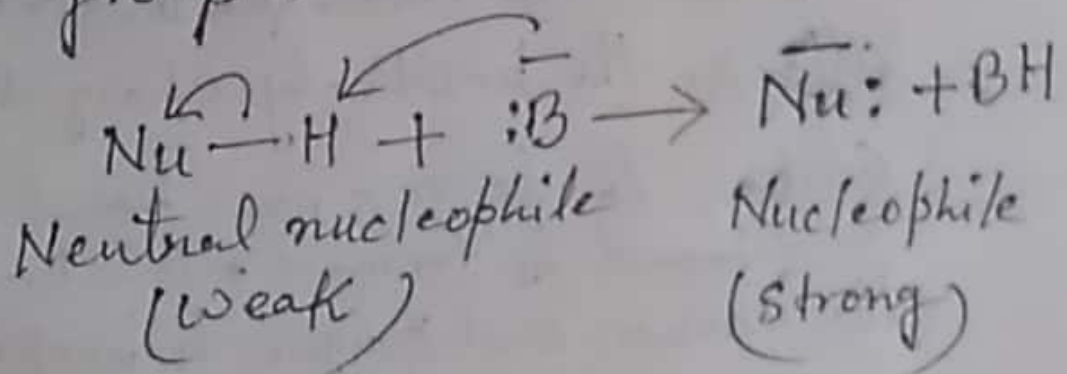 Nu—H + :B̄ → N̄u: + BH
Neutral nucleophile Nucleophile
(Weak) (Strong)